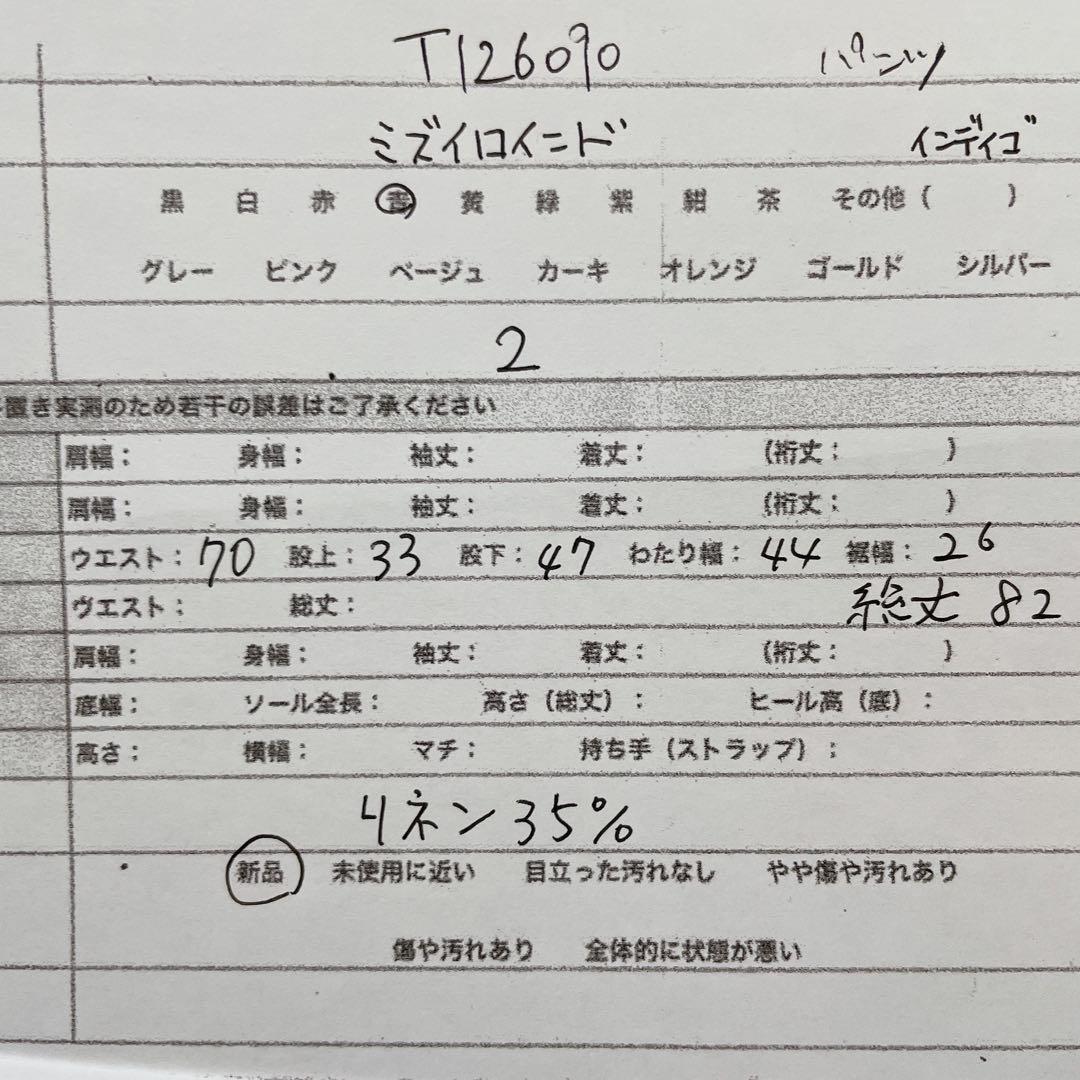 T126090 パンツ
ミズイロインド インディゴ
黒 白 赤 青 黄 緑 紫 紺 茶 その他（ ）
グレー ピンク ベージュ カーキ オレンジ ゴールド シルバー
2
置き実測のため若干の誤差はご了承ください
肩幅： 身幅： 袖丈： 着丈： （裄丈： ）
肩幅： 身幅： 袖丈： 着丈： （裄丈： ）
ウエスト：70 股上：33 股下：47 わたり幅：44 裾幅：26
ヴエスト： 総丈： 総丈 82
肩幅： 身幅： 袖丈： 着丈： （裄丈： ）
底幅： ソール全長： 高さ（総丈）： ヒール高（底）：
高さ： 横幅： マチ： 持ち手（ストラップ）：
リネン35%
新品 未使用に近い 目立った汚れなし やや傷や汚れあり
傷や汚れあり 全体的に状態が悪い